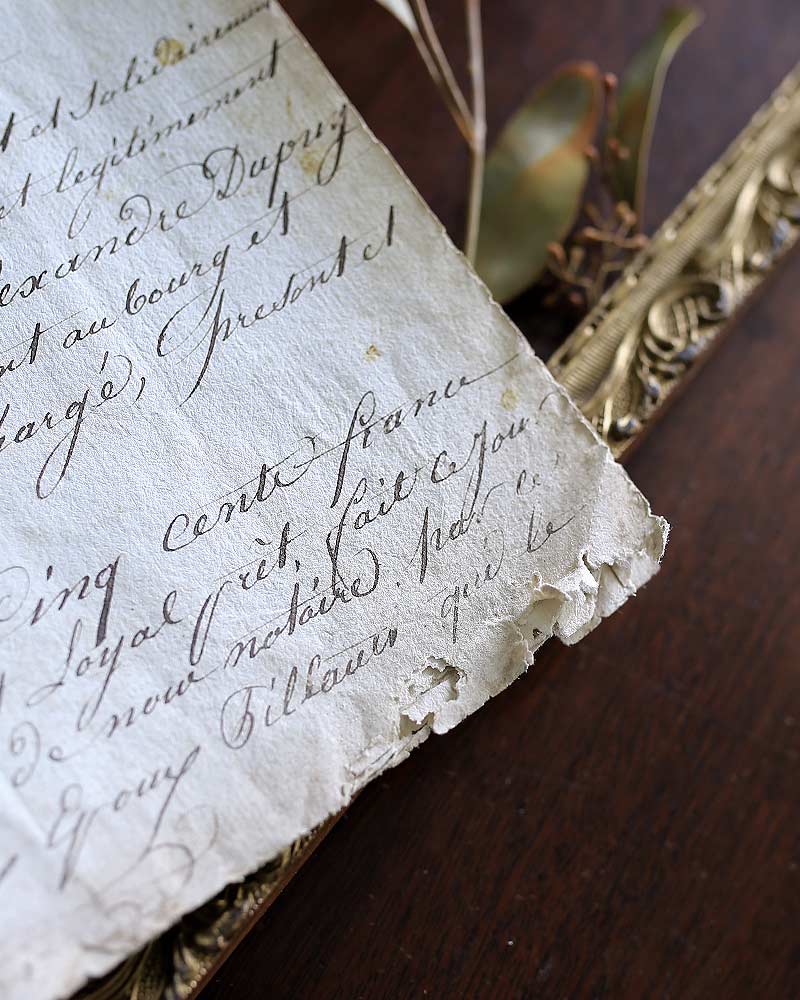 et solidairement
et legitimement
exandre Dupuy
nt au bourg et
hargé, present et
Cinq cents francs
Loyal prêt, fait ce jour
de nous notaire par ce
Epoux Fillaud qui le